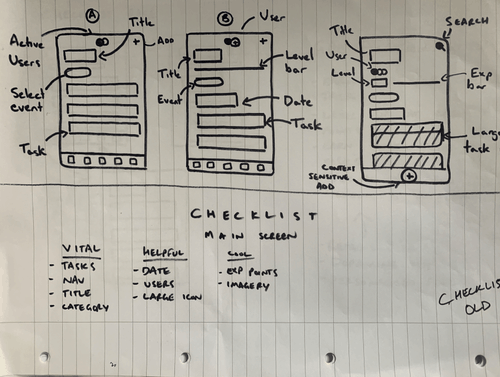 A
Title
Active
Users
+
ADD
Select
event
Task
B
User
+
Level
bar
Title
Event
Date
Task
SEARCH
Title
User
Level
Exp
bar
Large
task
CONTEXT
SENSITIVE
ADD
+
CHECKLIST
MAIN SCREEN
VITAL
- TASKS
- NAV
- TITLE
- CATEGORY
HELPFUL
- DATE
- USERS
- LARGE ICON
COOL
- EXP POINTS
- IMAGERY
CHECKLIS
OLD